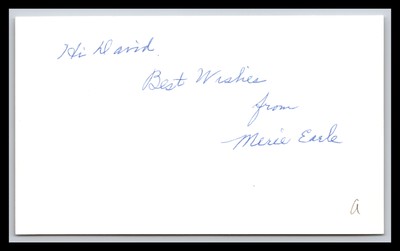 Hi David.
Best Wishes
from
Merie Earle
a